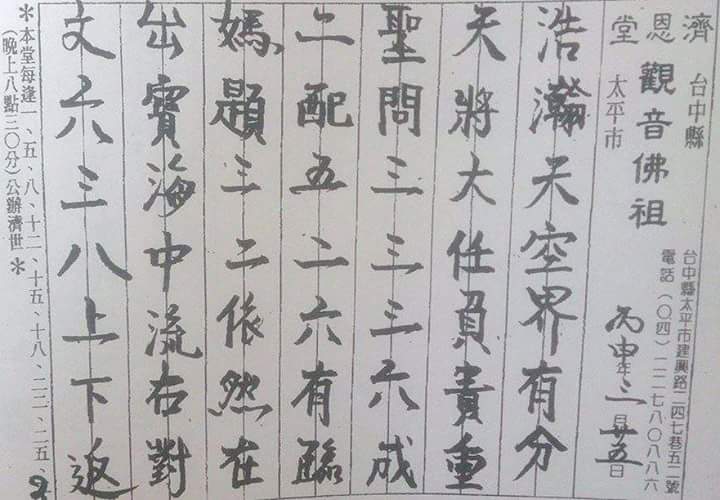 濟恩堂
台中縣太平市
觀音佛祖
台中縣太平市建興路二四七巷五二號
電話(〇四)二二七八〇八八六
丙申年三月廿五日
浩瀚天空界有分
天將大任負責重
聖問三三三六成
二配五二六有臨
媽題三二依然在
出寶海中流右對
文六三八上下返
*本堂每逢一、五、八、十二、十五、十八、二二、二五、
(晚上八點三〇分)公辦濟世*